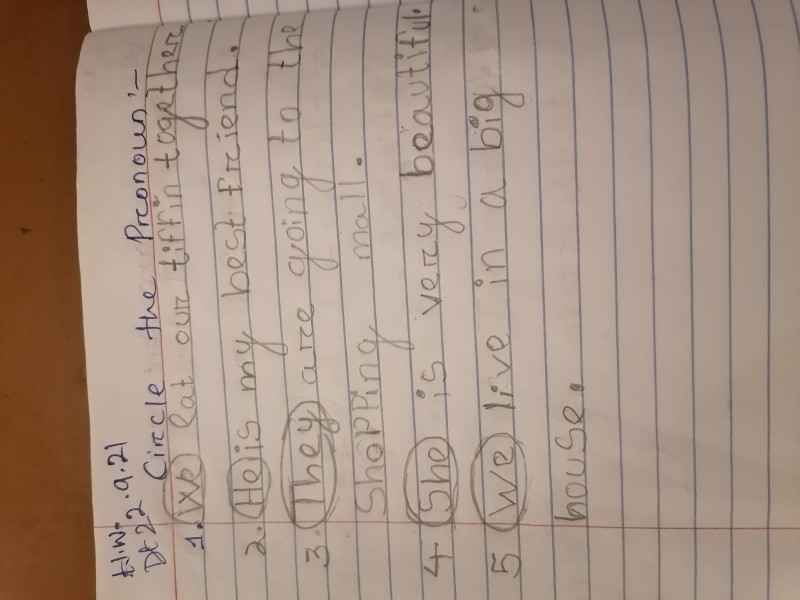 H.W.
Dt 22.9.21
Circle the Pronoun:-
1. We eat our tiffin together
2. He is my best friend.
3. They are going to the
Shopping mall.
4 She is very beautiful.
5 We live in a big
house.